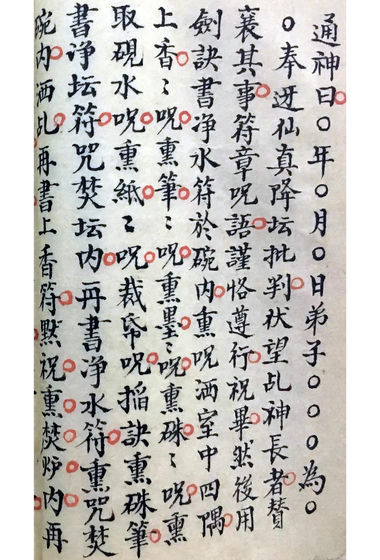 通神曰〇年〇月〇日弟子〇〇〇為〇
〇奉迓仙真降坛批判伏望乩神長者賛
襄其事符章呪語謹恪遵行祝畢然後用
劍訣書净水符於碗内熏呪洒室中四隅
上香〻呪熏筆〻呪熏墨〻呪熏硃〻呪熏
取硯水呪熏紙〻呪裁帋呪掐訣熏硃筆
書净坛符咒焚坛内再書净水符熏咒焚
碗内洒乩再書上香符默祝熏焚炉内再